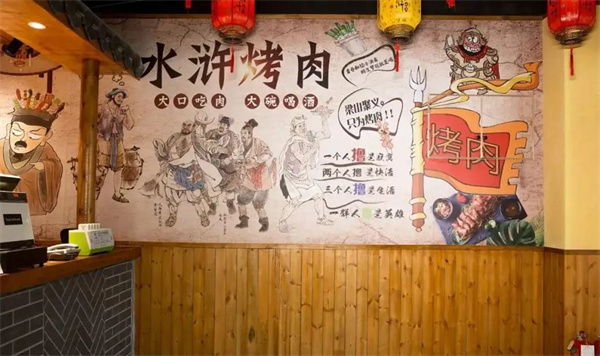 水浒烤肉
大口吃肉 大碗喝酒
梁山聚义。
只为烤肉!!
一个人撸是寂寞
两个人撸是快活
三个人撸是生活
一群人撸是英雄
烤肉